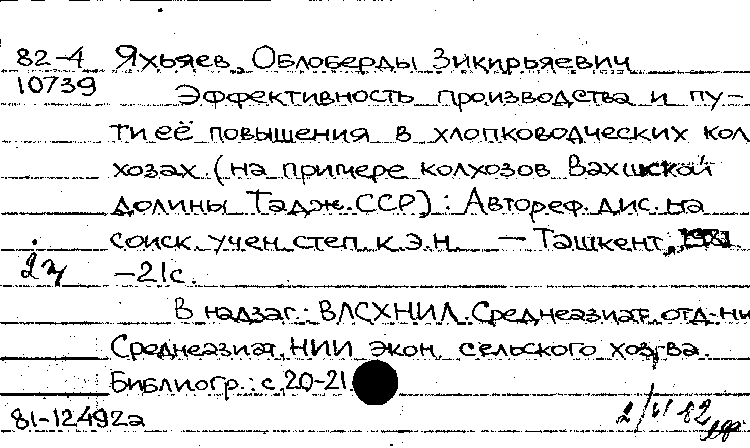 82-4 Яхьяев, Облоберды Зикирьяевич
10739 Эффективность производства и пу-
ти её повышения в хлопководческих кол
хозах (на примере колхозов Вахшской
долины Тадж.ССР) : Автореф. дис. на
соиск. учен. степ. к.э.н. — Ташкент,
-21с.
В надзаг.: ВАСХНИЛ. Среднеазиат. отд-ни
Среднеазиат. НИИ экон. сельского хоз-ва.
Библиогр.: с.20-21
81-12492а